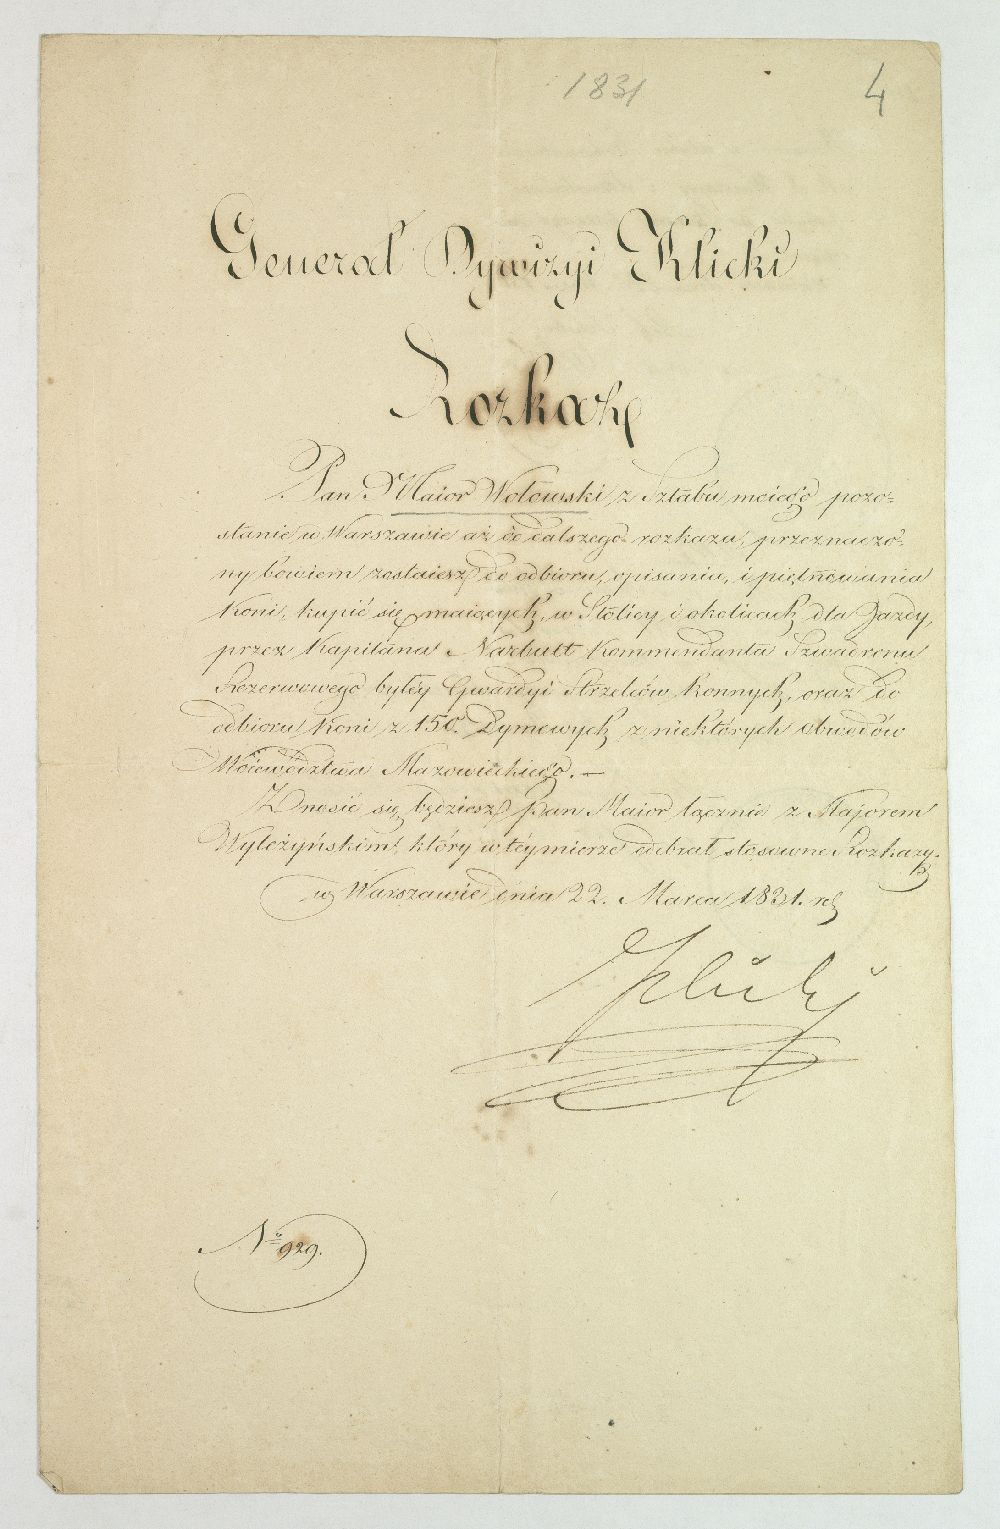 1831
4
Generał Dywizyi Klicki
Rozkaz
Pan Maior Wołowski z Sztabu moiego pozo-
stanie w Warszawie aż do dalszego rozkazu, przeznaczo-
ny bowiem zostaiesz do odbioru, opisania, i piętnowania
Koni, kupić się maiących, w Stolicy i okolicach dla Jazdy,
przez Kapitana Narbutt Kommendanta Szwadronu
Rezerwowego byłéy Gwardyi Strzelców Konnych, oraz do
odbioru Koni z 150. Dymowych z niektórych obwodów
Woiewództwa Mazowieckiego. —
Znosić się będziesz Pan Maior łącznie z Majorem
Wyleżyńskim, który w téy mierze odebrał stosowne Rozkazy.
w Warszawie dnia 22. Marca 1831. r
Klicki
No 929.